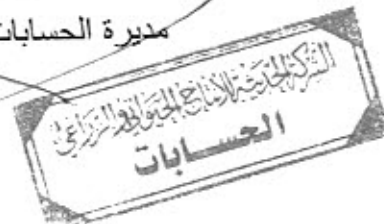 مديرة الحسابات
الشركة الحديثة للإنتاج الحيواني والزراعي
الحسابات